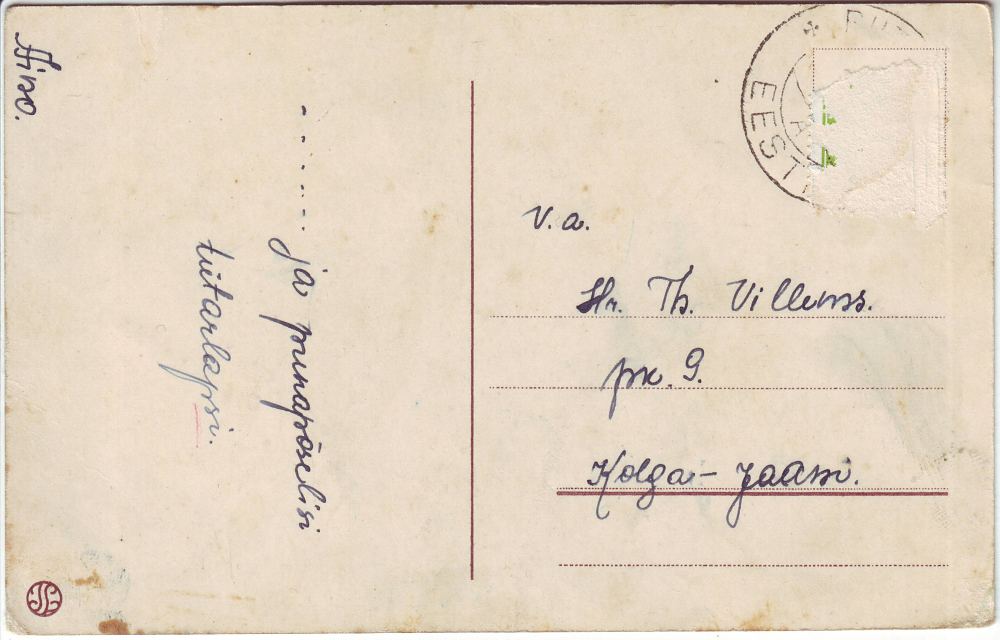 Aino.
..... ja punapõselisi
tütarlapsi.
EESTI
V. a.
Hr. Th. Villems.
pk. 9.
Kolga-Jaani.